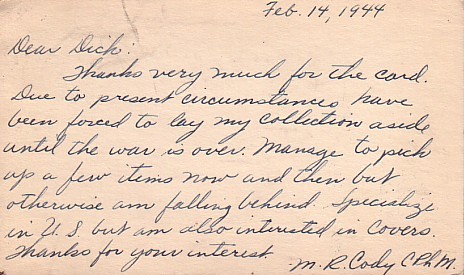 Feb. 14, 1944
Dear Dick:
Thanks very much for the card.
Due to present circumstances have
been forced to lay my collection aside
until the war is over. Manage to pick
up a few items now and then but
otherwise am falling behind. Specialize
in U. S. but am also interested in Covers.
Thanks for your interest
M. R. Cody CPhM.